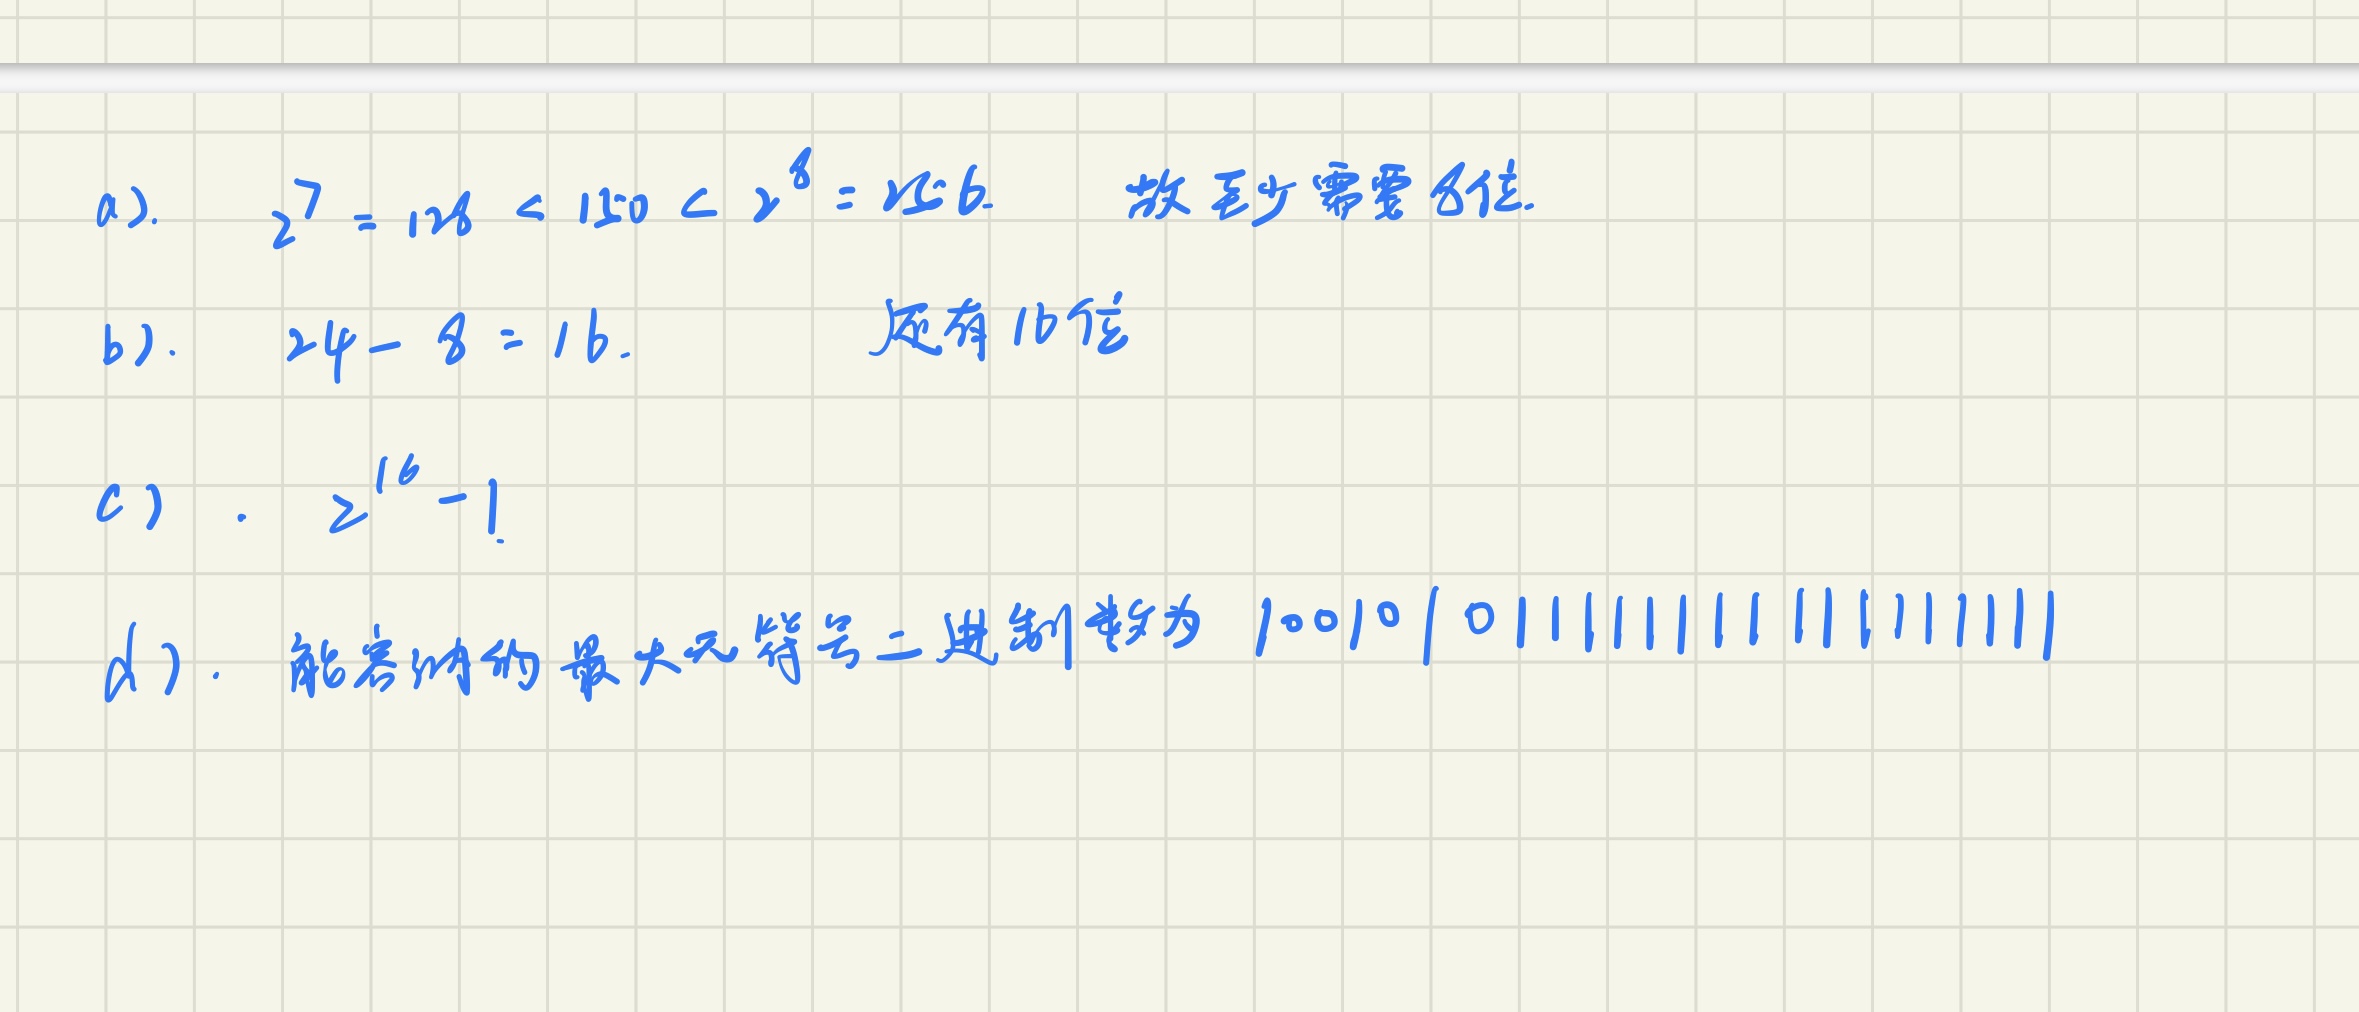 a). 2⁷ = 128 < 150 < 2⁸ = 256. 故至少需要8位.
b). 24 - 8 = 16. 还有16位
c). 2¹⁶ - 1.
d). 能容纳的最大无符号二进制数为 100101011111111111111111